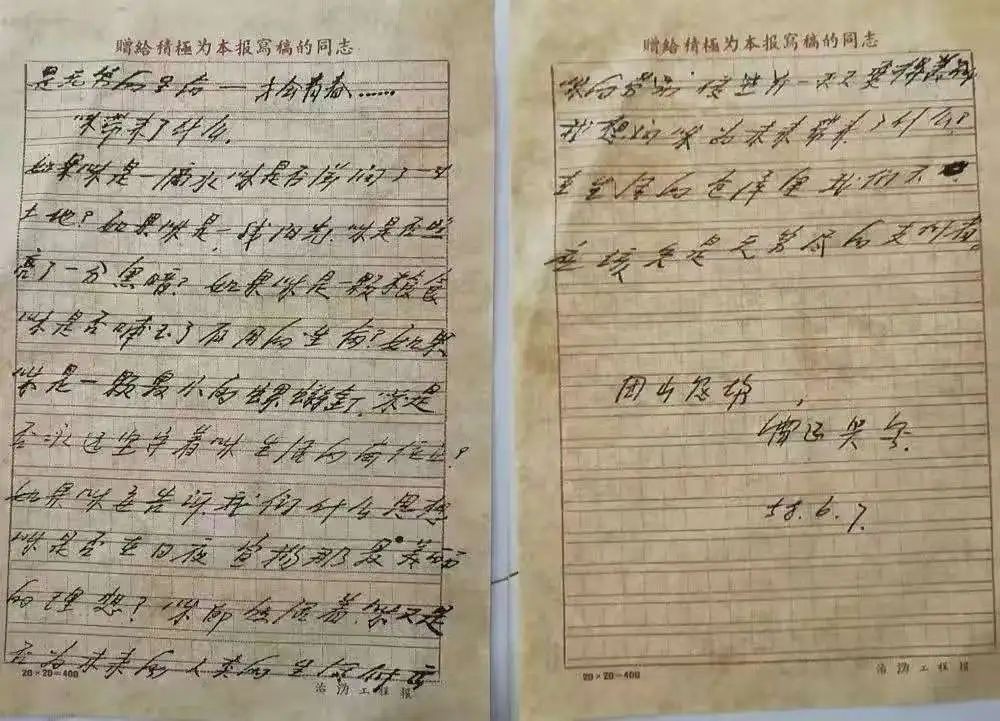 赠给積極为本报寫稿的同志
是无
的生活——才会青春……
你带来了什么.
如果你是一滴水你是否滋润了一寸
土地?如果你是一线阳光.你是否照
亮了一分黑暗?如果你是一颗粮食
你是否哺玉了有用的生命?如果
你是一颗最小的螺蛳钉.你是
否永远坚守着你生活的岗位上?
如果你要告诉我们什么思想
你是否在日夜宣扬那最美丽
的理想?你即然活着.你又是
否为未来的人类的生活付出
20×20=400
治沩工程报
赠给積極为本报寫稿的同志
你的劳动.使世界一天天变得美丽
我想问你为未来带来了什么?
在生活的仓库里我们不
应该只是无穷尽的支付者.
团山
雷正兴
58.6.7.
20×20=400
治沩工程报